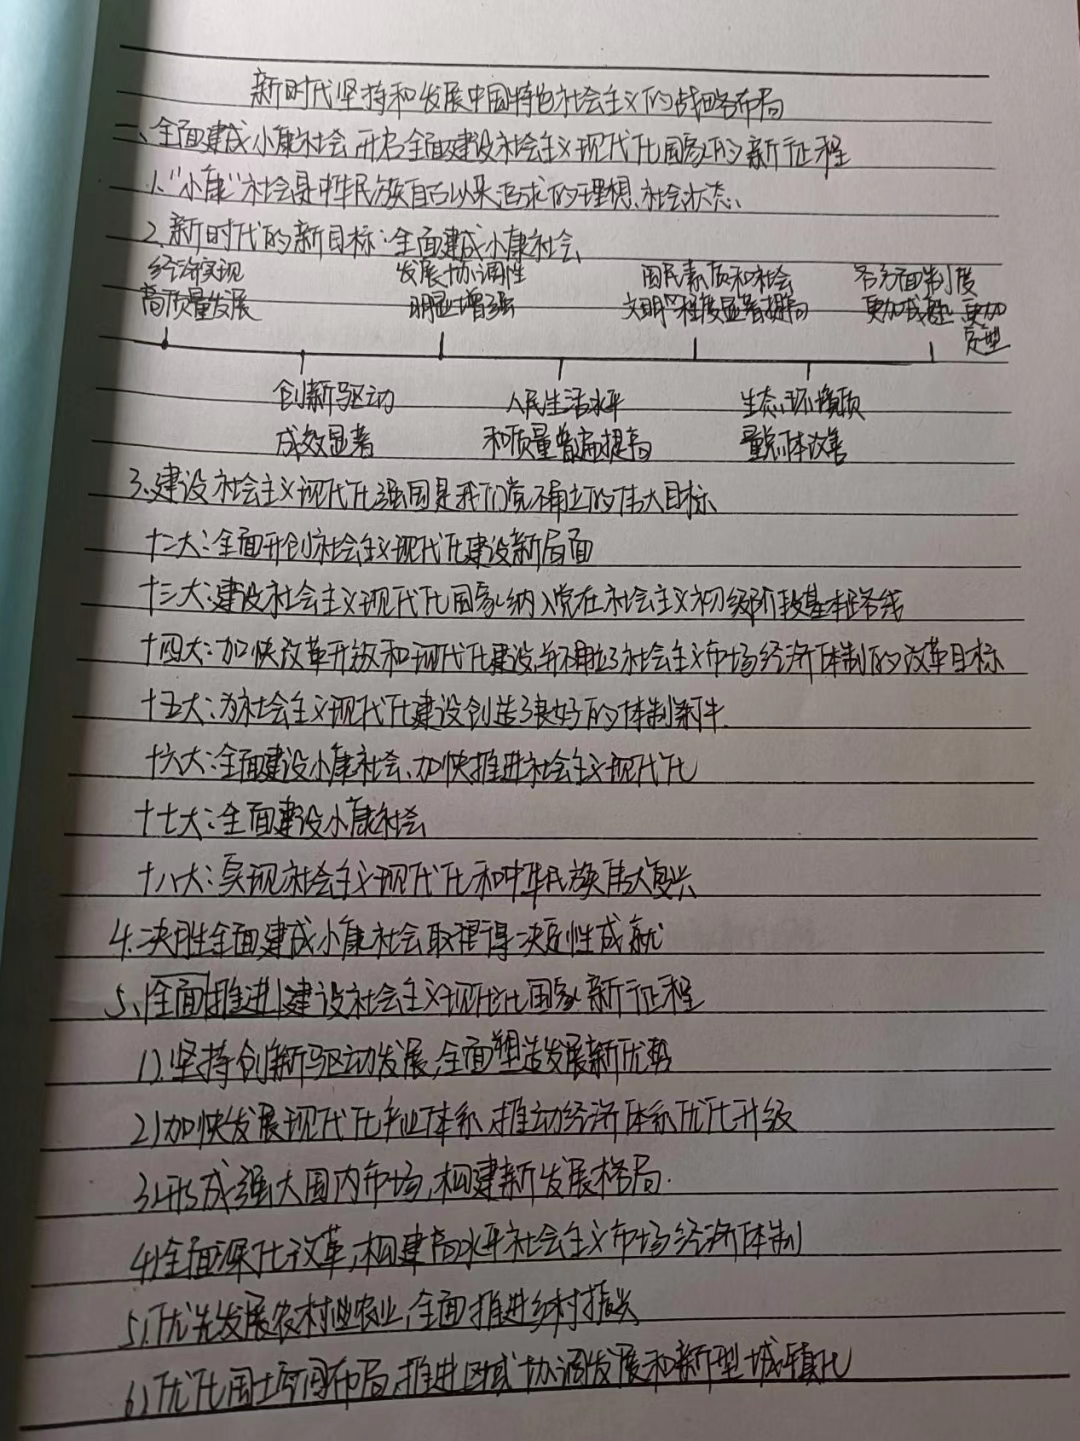 新时代坚持和发展中国特色社会主义的战略布局
一、全面建成小康社会,开启全面建设社会主义现代化国家的新征程
1、"小康"社会是中华民族自古以来追求的理想社会状态、
2、新时代的新目标:全面建成小康社会
经济实现 发展协调性 国民素质和社会 各方面制度
高质量发展 明显增强 文明程度显著提高 更加成熟 更加
定型
创新驱动 人民生活水平 生态环境质
成效显著 和质量普遍提高 量总体改善
3、建设社会主义现代化强国是我们党确立的伟大目标
十二大:全面开创社会主义现代化建设新局面
十三大:建设社会主义现代化国家纳入党在社会主义初级阶段基本路线
十四大:加快改革开放和现代化建设,并确立了社会主义市场经济体制的改革目标
十五大:为社会主义现代化建设创造了良好的体制条件
十六大:全面建设小康社会、加快推进社会主义现代化
十七大:全面建设小康社会
十八大:实现社会主义现代化和中华民族伟大复兴
4、决胜全面建成小康社会取得决定性成就
5、全面推进建设社会主义现代化国家新征程
1)、坚持创新驱动发展,全面塑造发展新优势
2)加快发展现代化产业体系,推动经济体系优化升级
3)形成强大国内市场,构建新发展格局.
4)全面深化改革,构建高水平社会主义市场经济体制
5)、优先发展农村农业,全面推进乡村振兴
6)优化国土空间布局,推进区域协调发展和新型城镇化